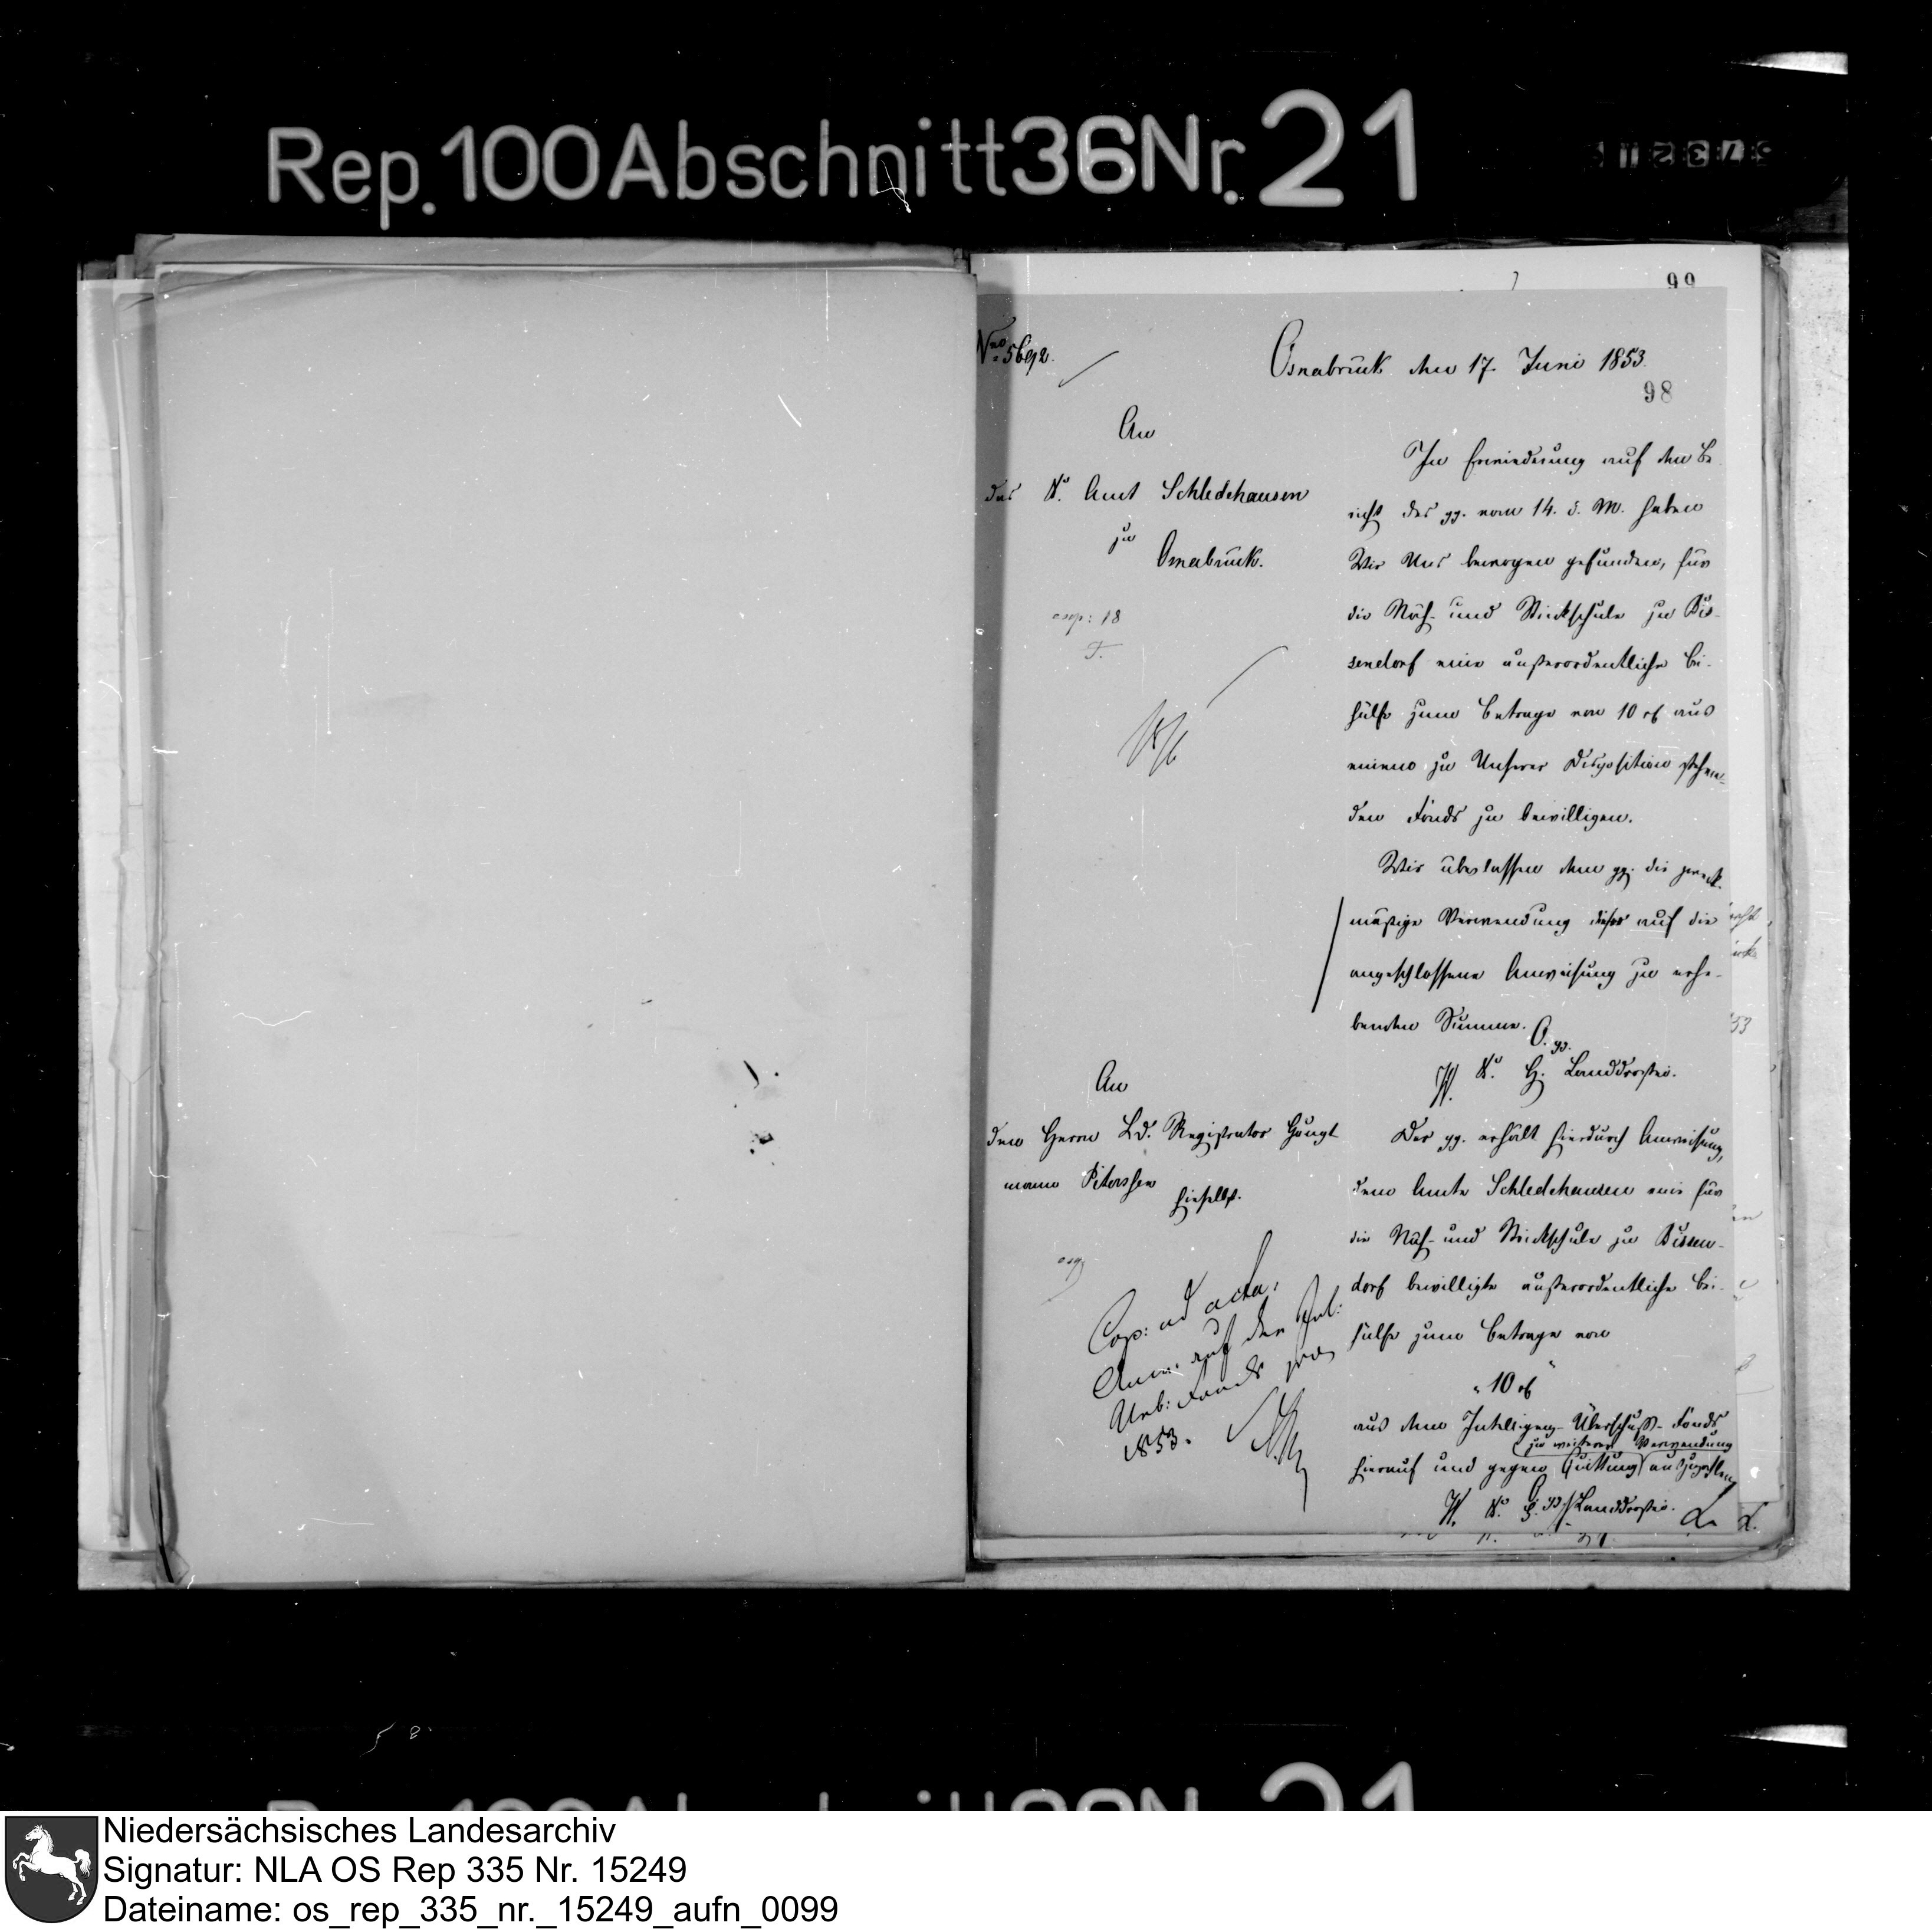 Rep. 100 Abschnitt 36 Nr. 21
99
Nro 5692.
Osnabrück den 17. Juni 1853.
98
An
das K. Amt Schledehausen
zu
Osnabrück.
exp: 18
In Erwiederung auf den Be-
richt des pp. vom 14. d. M. haben
Wir Uns bewogen gefunden, für
die Näh- und Strickschule zu Bis-
sendorf eine außerordentliche Bei-
hülfe zum Betrage von 10 rl aus
einem zu Unserer Disposition stehen-
den Fonds zu bewilligen.
Wir überlassen dem pp. die zweck-
mäßige Verwendung dieser auf die
angeschlossene Anweisung zu erhe-
benden Summe.
O. pp.
K. H. Landdrostei.
An
den Herrn Ld. Registrator Haupt-
mann Peterssen
hieselbst.
Der pp. erhält hierdurch Anweisung,
dem Amte Schledehausen eine für
die Näh- und Strickschule zu Bissen-
dorf bewilligte außerordentliche Bei-
hülfe zum Betrage von
"10 rl"
aus dem Intelligenz-Überschuß-Fonds
zu weiterer Verwendung
hierauf und gegen Quittung auszuzahlen
K. H. Landdrostei.
Cop: ad acta:
Anw. auf den Int:
Ueb: Fonds pro
1853.
Niedersächsisches Landesarchiv
Signatur: NLA OS Rep 335 Nr. 15249
Dateiname: os_rep_335_nr._15249_aufn_0099